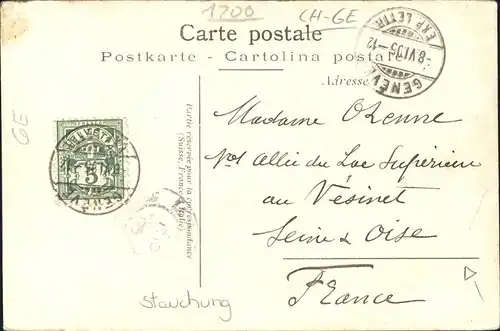 1700
CH-GE
Carte postale
Postkarte - Cartolina postale
Adresse
GENÈVE
EXP. LETTR.
-8.VI.05-12
GE
HELVETIA
5
GENÈVE
Partie réservée pour la correspondance
(Suisse, France, Italie)
Madame Ozenne
Allée du Lac Supérieur
au Vésinet
Seine & Oise
France
Stauchung